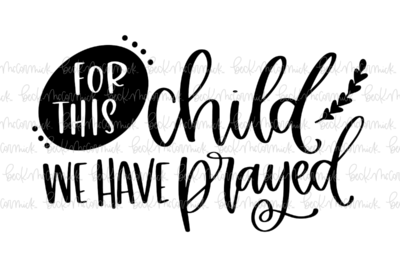 FOR
THIS
child
WE HAVE prayed